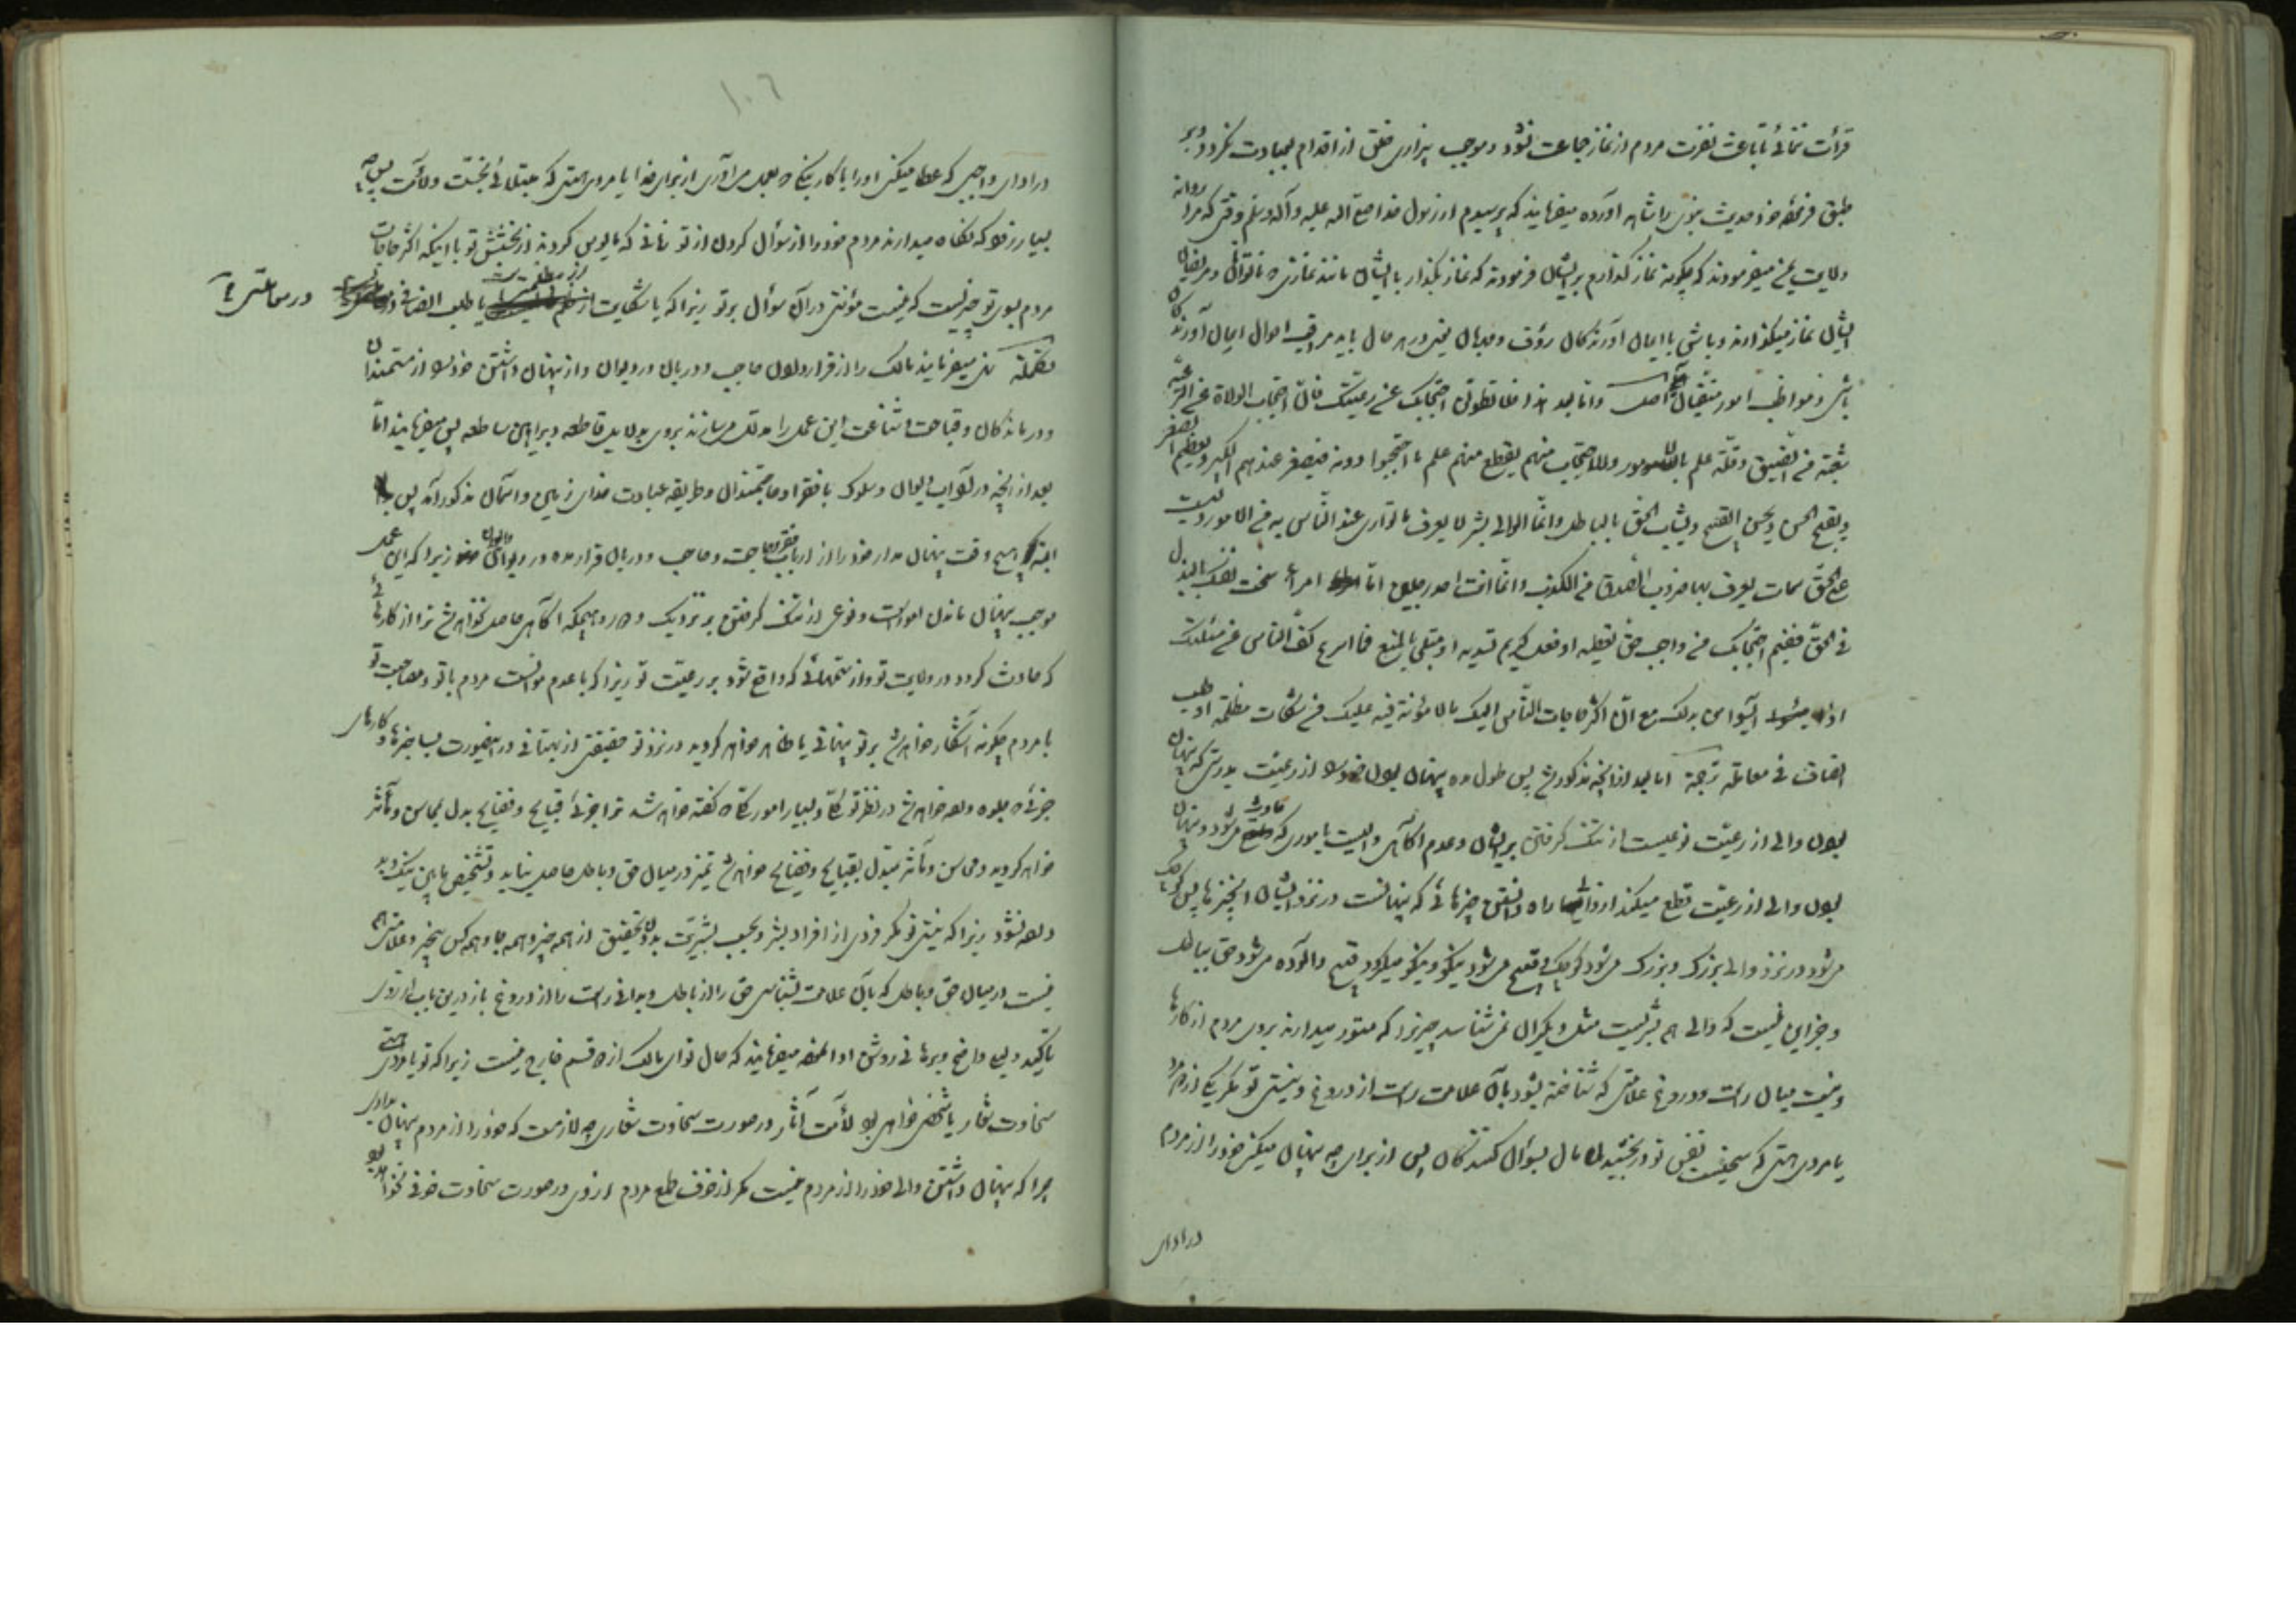 قرائت نمائی تا باعث نفرت مردم از نماز جماعت نشود و موجب بیزاری خلق از اقدام بعبادت نگردد و بر
طبق فرموده خود حدیث نبوی را شاهد آورده میفرمایند که پرسیدم از رسول خدا صلی اله علیه و آله و سلم وقتی که مرا روانه
ولایت یمن میفرمودند که چگونه نماز گذارم بر ایشان فرمودند که نماز بگذار با ایشان مانند نمازی که ناتوان و مریضان
ایشان نماز میگذارند و باش با ایمان آورندگان رؤف و مهربان یعنی در هر حال باید مراقب احوال ایمان آورندگان
باشی و مواظب امور اصل و اما بعد هذا فلا تطولن احتجابک عن رعیتک فان احتجاب الولاة عن الرعیة
شعبة من الضیق و قلة علم بالامور و الاحتجاب منهم یقطع عنهم علم ما احتجبوا دونه فیصغر عندهم الکبیر و یعظم الصغیر
و یقبح الحسن و یحسن القبیح و یشاب الحق بالباطل و انما الوالی بشر لا یعرف ما تواری عنه الناس به من الامور و لیست
علی الحق سمات یعرف بها ضروب الصدق من الکذب و انما انت احد رجلین اما امرء سخت نفسک بالبذل
فی الحق ففیم احتجابک من واجب حق تعطیه او فعل کریم تسدیه او مبتلی بالمنع فما اسرع کف الناس عن مسئلتک
اذا ایسوا من بذلک مع ان اکثر حاجات الناس الیک ما لا مؤنة فیه علیک من شکات مظلمة او طلب
انصاف فی معاملة ترجمة اما بعد از آنچه مذکور شد پس طول مده پنهان بودن خود را از رعیت بدرستی که پنهان
بودن والی از رعیت نوعیست از تنگ گرفتن بر ایشان و عدم آگاهی والیست باموری که حادث میشود و پنهان
بودن والی از رعیت قطع میکند از راه دانستن چیزهائی که پنهانست در نزد ایشان آنچیزها پس کوچک
میشود در نزد والی بزرک و بزرک میشود کوچک و قبیح میشود نیکو و نیکو میگردد قبیح و آلوده میشود حق بباطل
و جز این نیست که والی هم بشریست مثل دیگران نمیشناسد چیزیرا که مستور میدارند بروی مردم از کارها
و نیست میان راست و دروغ علامتی که شناخته بشود بآن علامت راست از دروغ و نیستی تو مگر یکی از دو مرد
یا مردی هستی که سخیست نفس تو در بخشیدن مال بسؤال کنندگان پس از برای چه پنهان میکنی خود را از مردم
در ادای
۱۰۶
در ادای واجبی که عطا میکنی او را یا کار نیکی که بعمل می آوری از برای خدا یا مردی هستی که مبتلائی بخست و لأمت پس چه
بسیار زود که نگاه میدارند مردم خود را از سؤال کردن از تو زمانی که مأیوس گردند از بخشش تو با اینکه اکثر حاجات
مردم بسوی تو چیزیست که نیست مؤنتی در آن سؤال بر تو زیرا که یا شکایت از مظلمتست یا طلب انصافی در معاملتی
تکملة میفرمایند مالک را از قرار دادن حاجب و دربان در دیوان و از پنهان داشتن خود را از مستمندان
و درماندگان و قباحت و شناعت این عمل را مدلل میسازند بر وی بدلایل قاطعه و براهین ساطعه پس میفرمایند اما
بعد از آنچه در آداب دیوان و سلوک با فقرا و حاجتمندان و طریقه عبادت خدای زمین و آسمان مذکور آمد پس
البته هیچ وقت پنهان مدار خود را از ارباب فقر و حاجت و حاجب و دربان قرار مده در دیوان زیرا که این عمل
موجب پنهان ماندن امورات و نوعی از تنگ گرفتن بر نزدیک و دور و هیچگه آگاهی حاصل نخواهد شد ترا از کارهائی
که حادث گردد در ولایت تو و از ستمهائی که واقع شود بر رعیت تو زیرا که با عدم موانست مردم با تو و مصاحبت تو
با مردم چگونه آشکار خواهد شد بر تو پنهانی یا ظاهر خواهد گردید در نزد تو حقیقتی از بهتانی در اینصورت بسا چیزها و کارهای
جزئی که جلوه داده خواهد شد در نظر تو کلی و بسیار امور کلی که گفته خواهد شد ترا جزئی قبایح و فضایح بدل بمحاسن و مآثر
خواهد گردید و محاسن و مآثر مبدل بقبایح و فضایح خواهد شد تمیز در میان حق و باطل حاصل نیاید و تشخیص مابین نیک و بد
داده نشود زیرا که نیستی تو مگر فردی از افراد بشر و بحسب بشریت بدون تحقیق از همه چیز و همه جا و همه کس بیخبر و علامتی هم
نیست در میان حق و باطل که بآن علامت بشناسی حق را از باطل و بدانی راست را از دروغ باز در این باب از روی
تأکید دلیل واضح و برهانی روشن ادا نموده میفرمایند که حال تو ای مالک از دو قسم خارج نیست زیرا که تو یا مردی هستی
سخاوت شعار یا شخصی خواهی بود لأمت آثار در صورت سخاوت شعاری چه لازمست که خود را از مردم پنهان بداری
چرا که پنهان داشتن والی خود را از مردم نیست مگر از خوف طمع مردم از وی و در صورت سخاوت خوفی نخواهد بود